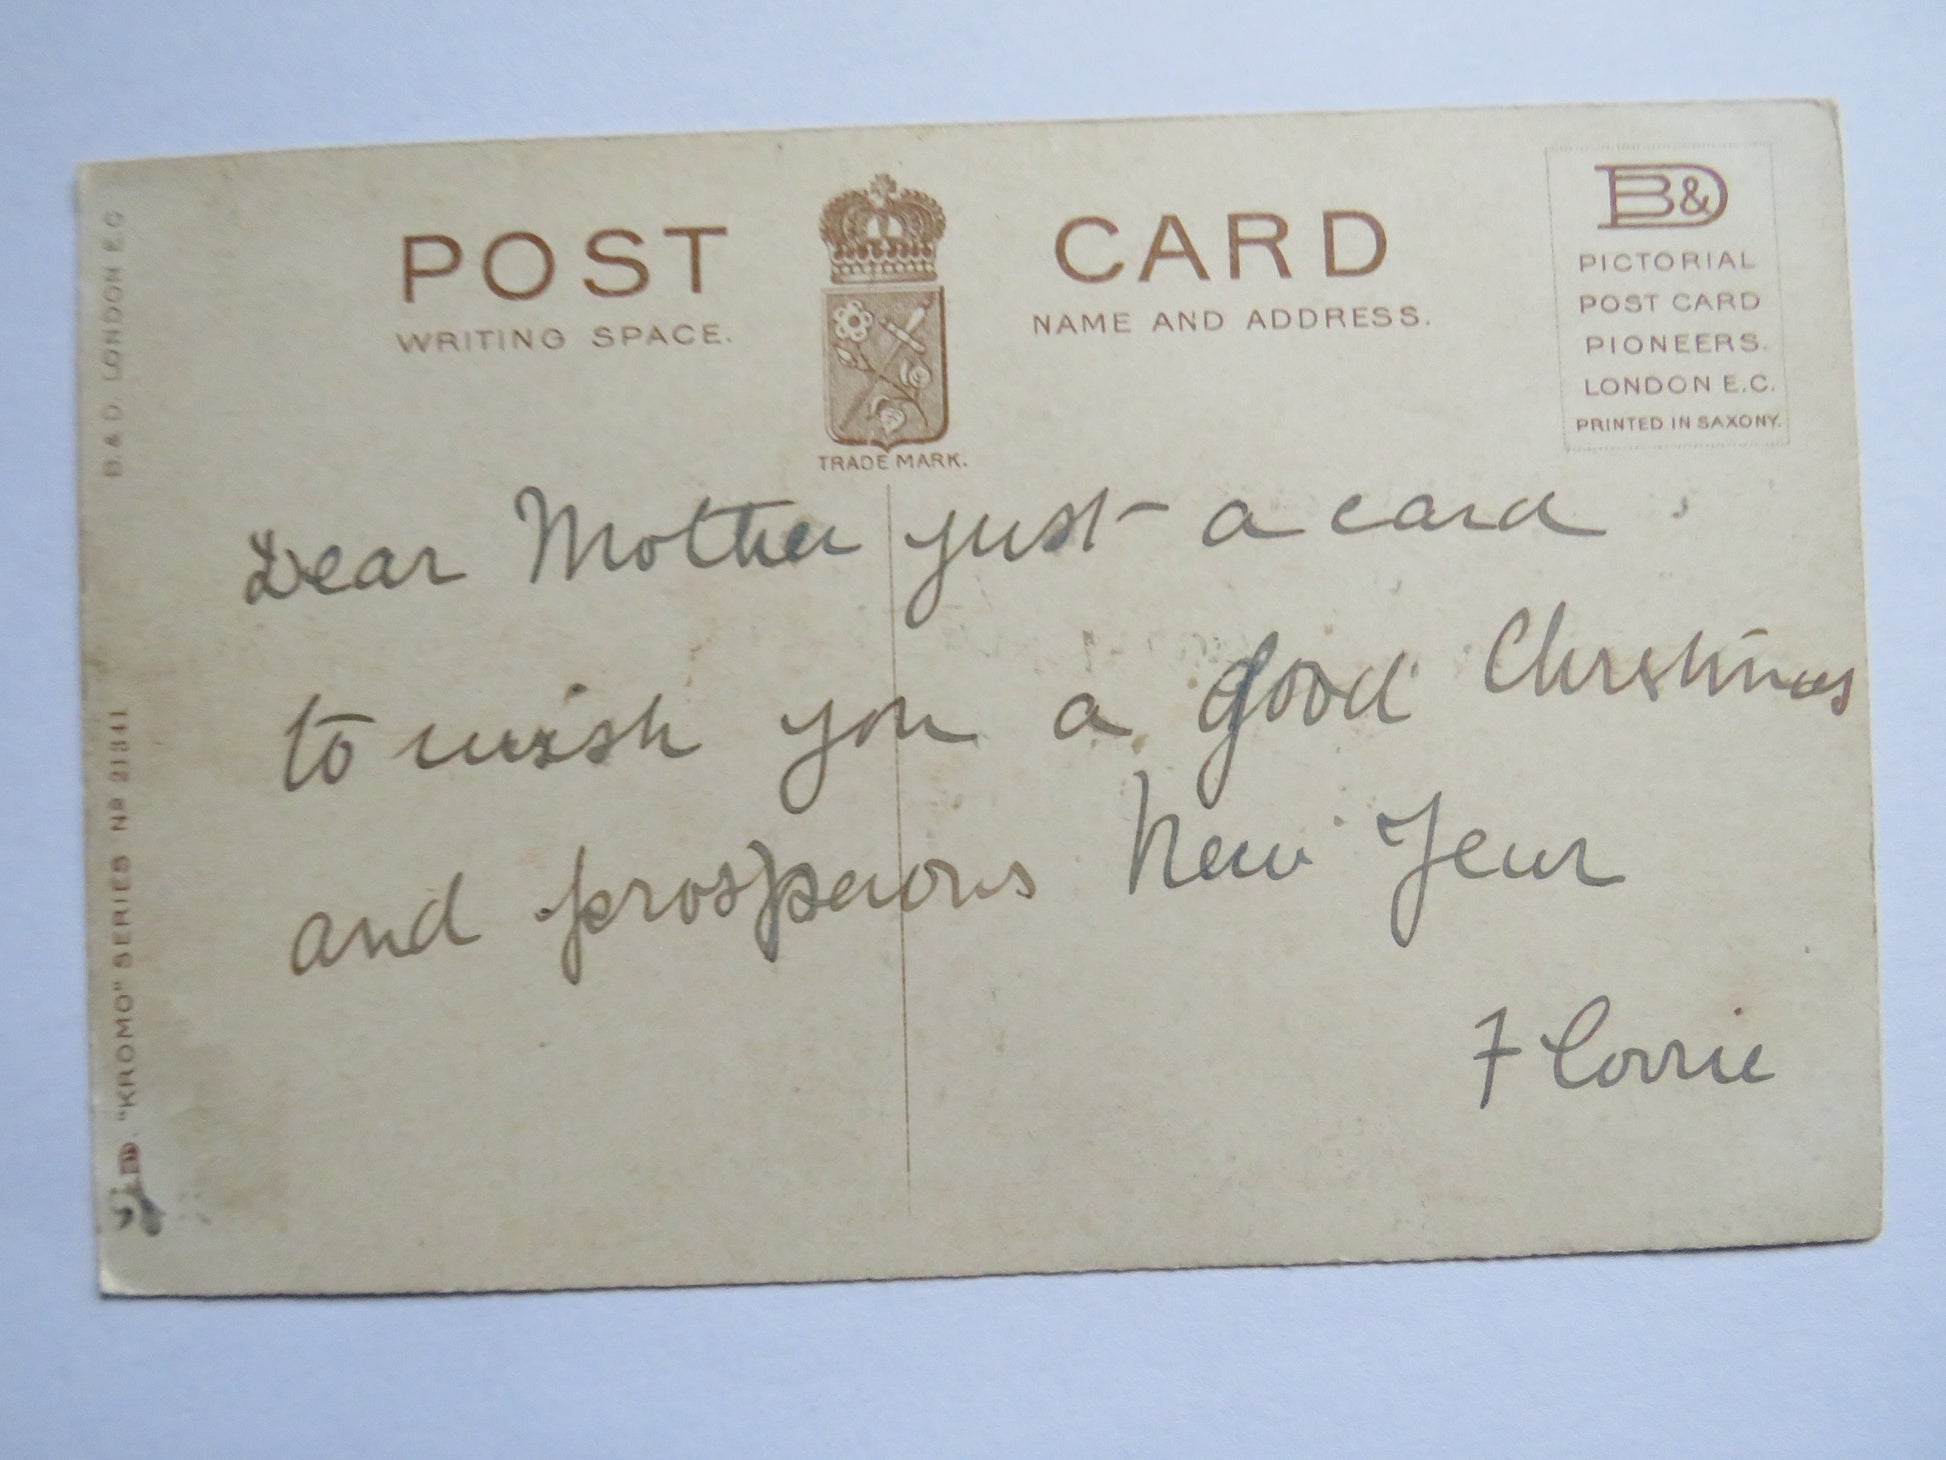 POST CARD
WRITING SPACE.
NAME AND ADDRESS.
TRADE MARK.
B&D
PICTORIAL
POST CARD
PIONEERS.
LONDON E.C.
PRINTED IN SAXONY.
B. & D. LONDON E.C
"KROMO" SERIES No 21341
Dear Mother just a card
to wish you a good Christmas
and prosperous New Year
Florrie